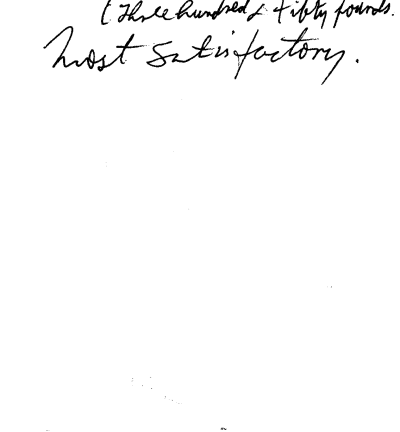 (Three hundred & fifty pounds.
Most Satisfactory.